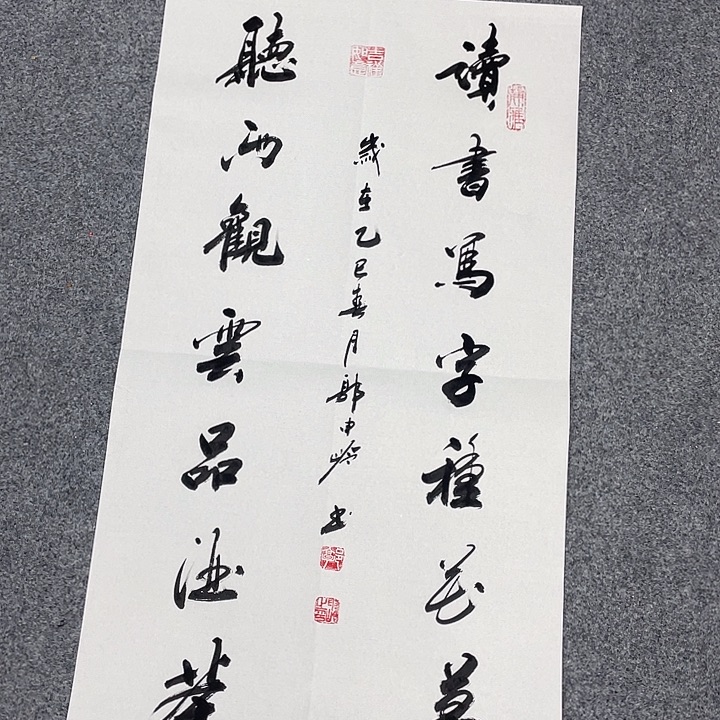 讀書寫字種花草
歲在乙巳春月郭中岭书
聽雨觀雲品酒茶